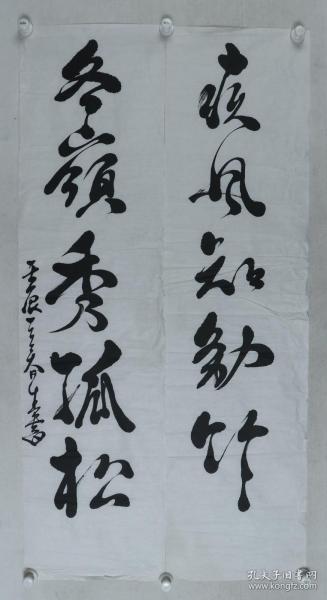 疾风知劲竹
冬岭秀孤松
孔夫子旧书网
www.kongfz.com